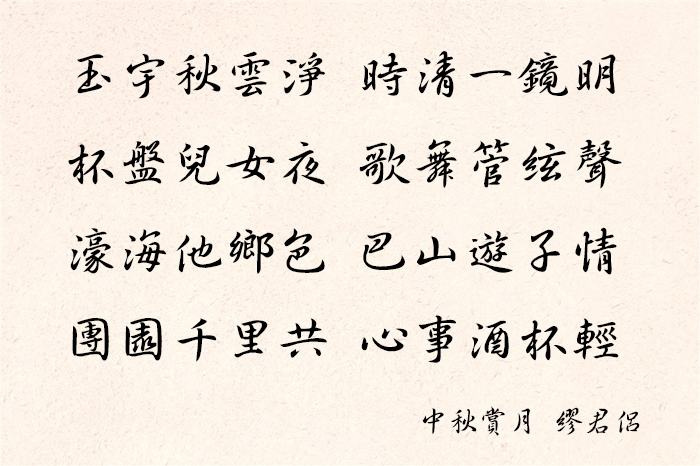 玉宇秋雲淨 時清一鏡明
杯盤兒女夜 歌舞管絃聲
濠海他鄉色 巴山遊子情
團圞千里共 心事酒杯輕
中秋賞月 繆君侶